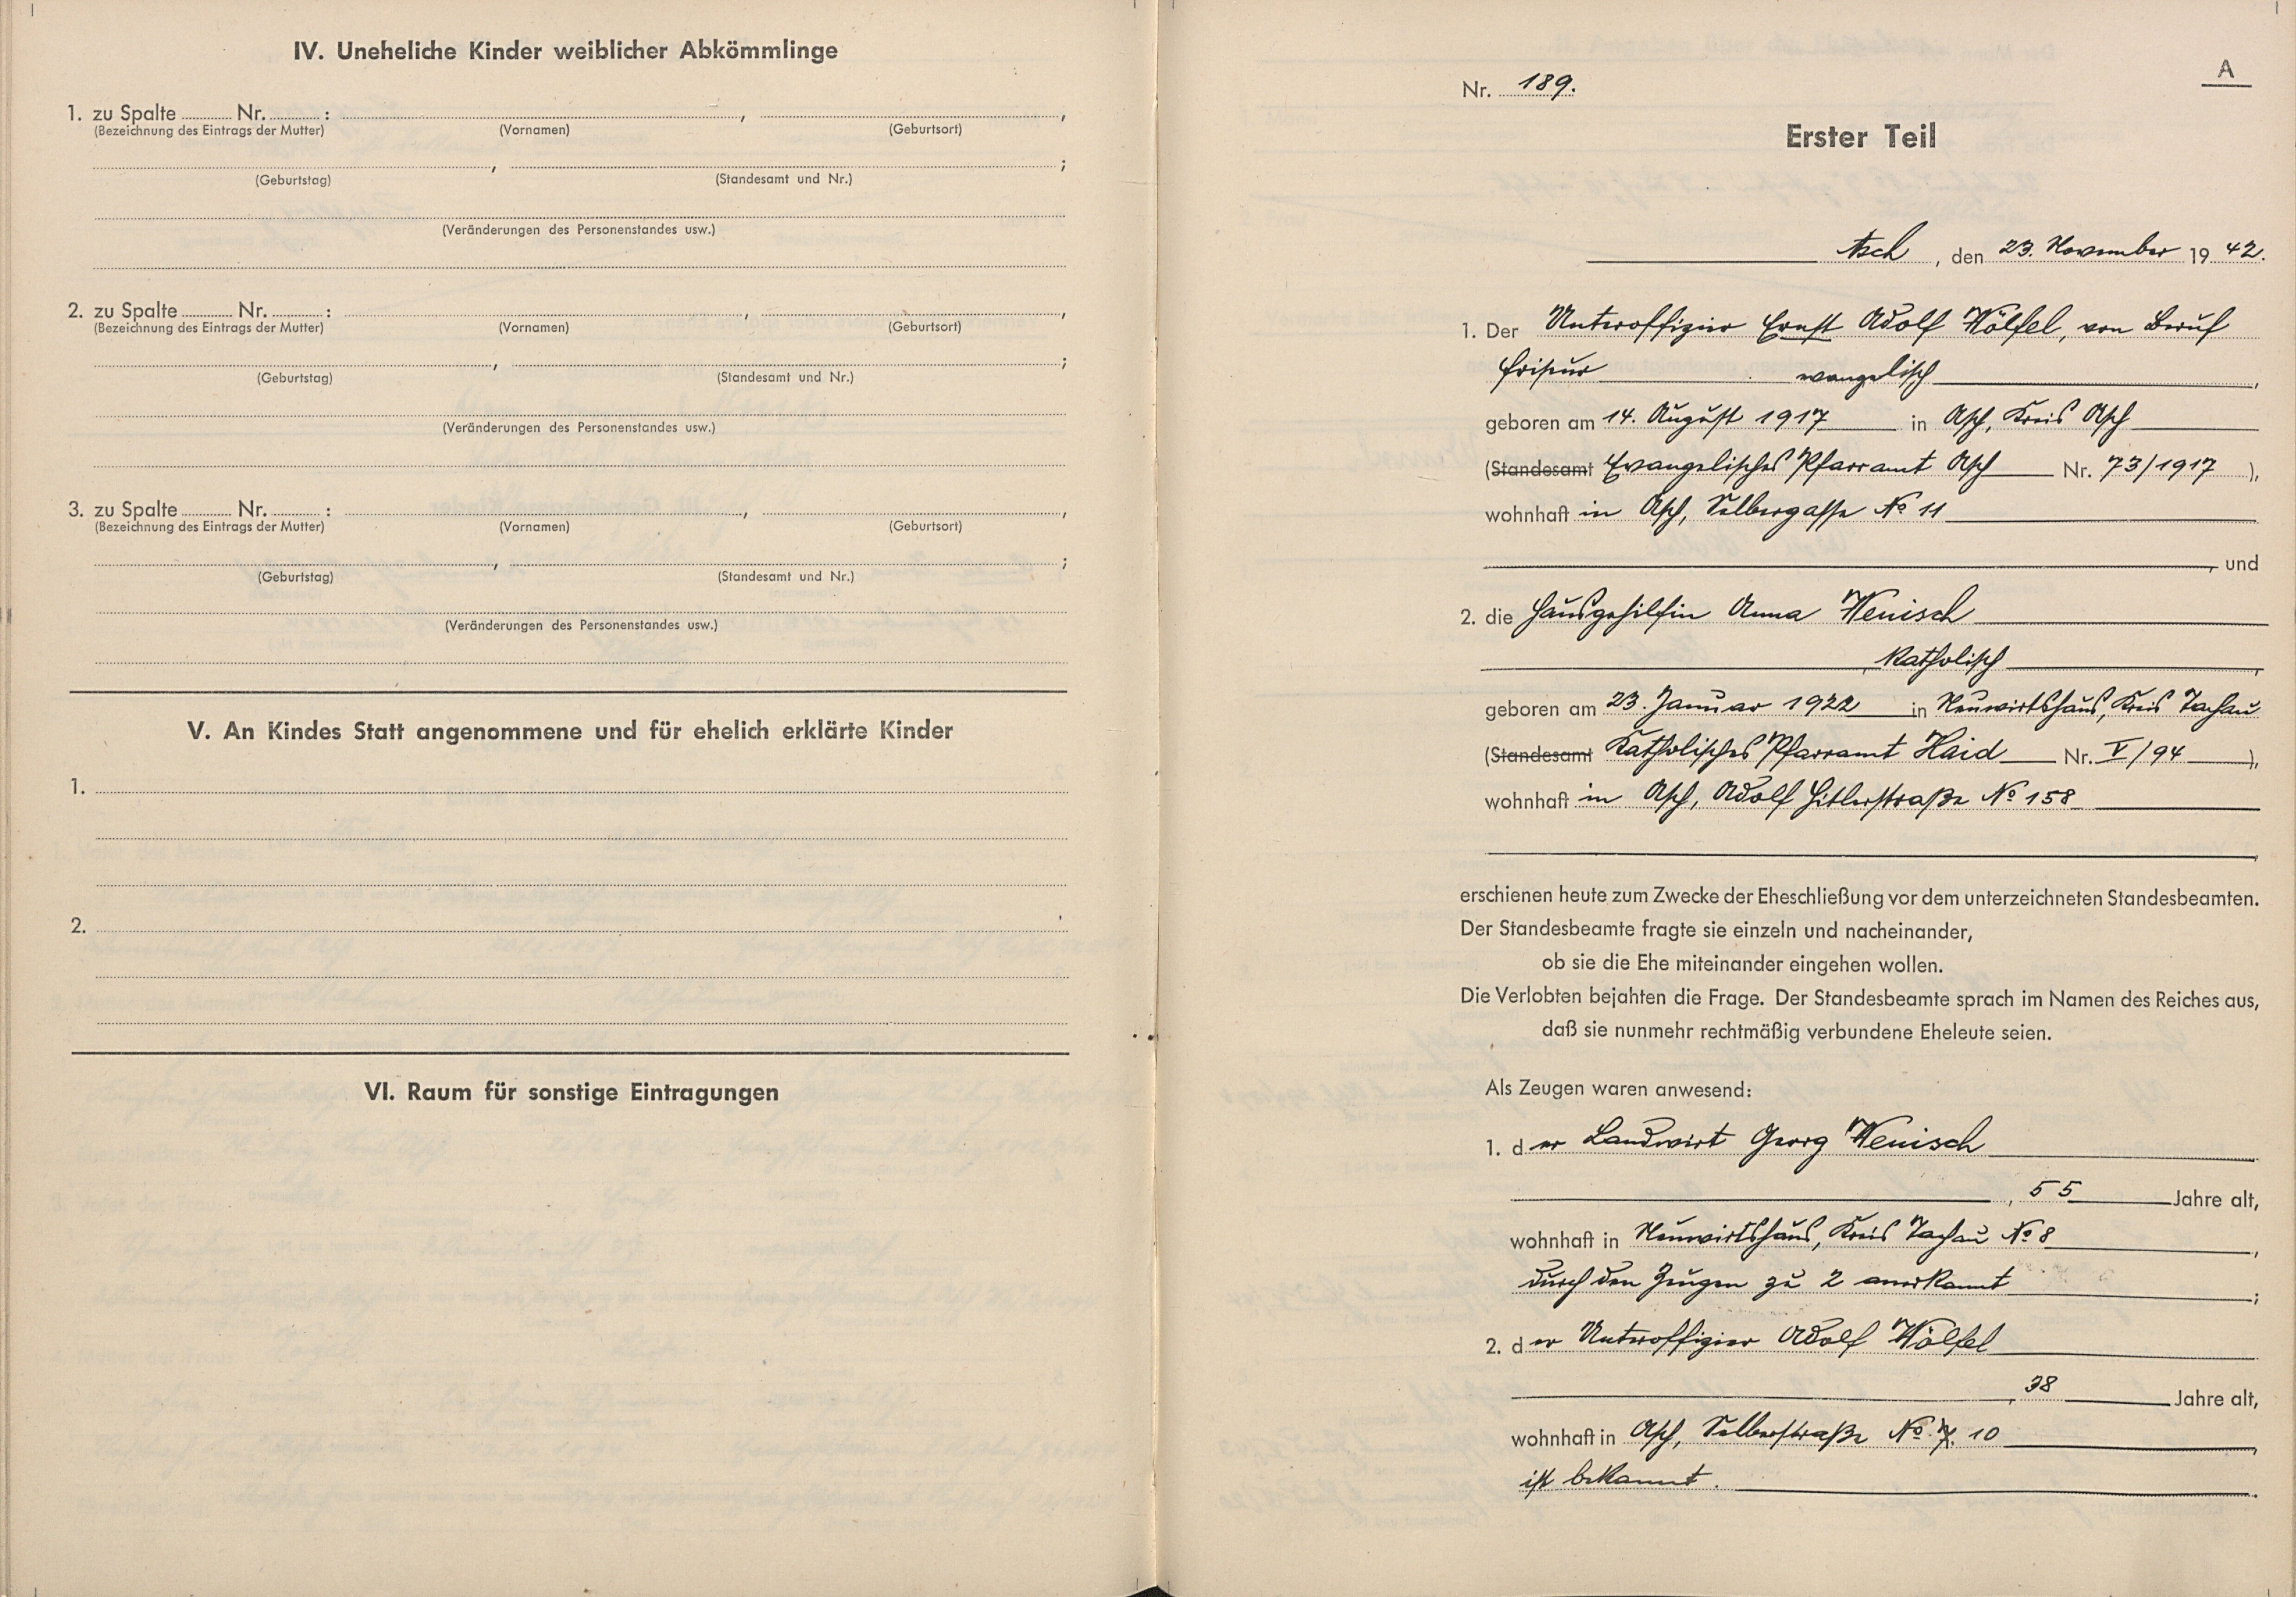 IV. Uneheliche Kinder weiblicher Abkömmlinge
1. zu Spalte ........ Nr. ........ : ........ , ........ ,
(Bezeichnung des Eintrags der Mutter) (Vornamen) (Geburtsort)
........ , ........ ;
(Geburtstag) (Standesamt und Nr.)
(Veränderungen des Personenstandes usw.)
2. zu Spalte ........ Nr. ........ : ........ , ........ ,
(Bezeichnung des Eintrags der Mutter) (Vornamen) (Geburtsort)
........ , ........ ;
(Geburtstag) (Standesamt und Nr.)
(Veränderungen des Personenstandes usw.)
3. zu Spalte ........ Nr. ........ : ........ , ........ ,
(Bezeichnung des Eintrags der Mutter) (Vornamen) (Geburtsort)
........ , ........ ;
(Geburtstag) (Standesamt und Nr.)
(Veränderungen des Personenstandes usw.)
V. An Kindes Statt angenommene und für ehelich erklärte Kinder
1.
2.
VI. Raum für sonstige Eintragungen
A
Nr. 189.
Erster Teil
Asch, den 23. November 1942.
1. Der Unteroffizier Ernst Adolf Wölfel, von Beruf
Friseur evangelisch,
geboren am 14. August 1917 in Asch, Kreis Asch
(Standesamt Evangelisches Pfarramt Asch Nr. 73/1917),
wohnhaft in Asch, Selbergasse No 11
, und
2. die Hausgehilfin Anna Wenisch
, katholisch,
geboren am 23. Januar 1922 in Neuwirtshaus, Kreis Tachau
(Standesamt Katholisches Pfarramt Haid Nr. V/94),
wohnhaft in Asch, Adolf Hitlerstraße No 158
,
erschienen heute zum Zwecke der Eheschließung vor dem unterzeichneten Standesbeamten.
Der Standesbeamte fragte sie einzeln und nacheinander,
ob sie die Ehe miteinander eingehen wollen.
Die Verlobten bejahten die Frage. Der Standesbeamte sprach im Namen des Reiches aus,
daß sie nunmehr rechtmäßig verbundene Eheleute seien.
Als Zeugen waren anwesend:
1. der Landwirt Georg Wenisch
, 55 Jahre alt,
wohnhaft in Neuwirtshaus, Kreis Tachau No 8,
durch den Zeugen zu 2 anerkannt;
2. der Unteroffizier Adolf Wölfel
, 38 Jahre alt,
wohnhaft in Asch, Selberstraße No 10,
ist bekannt.